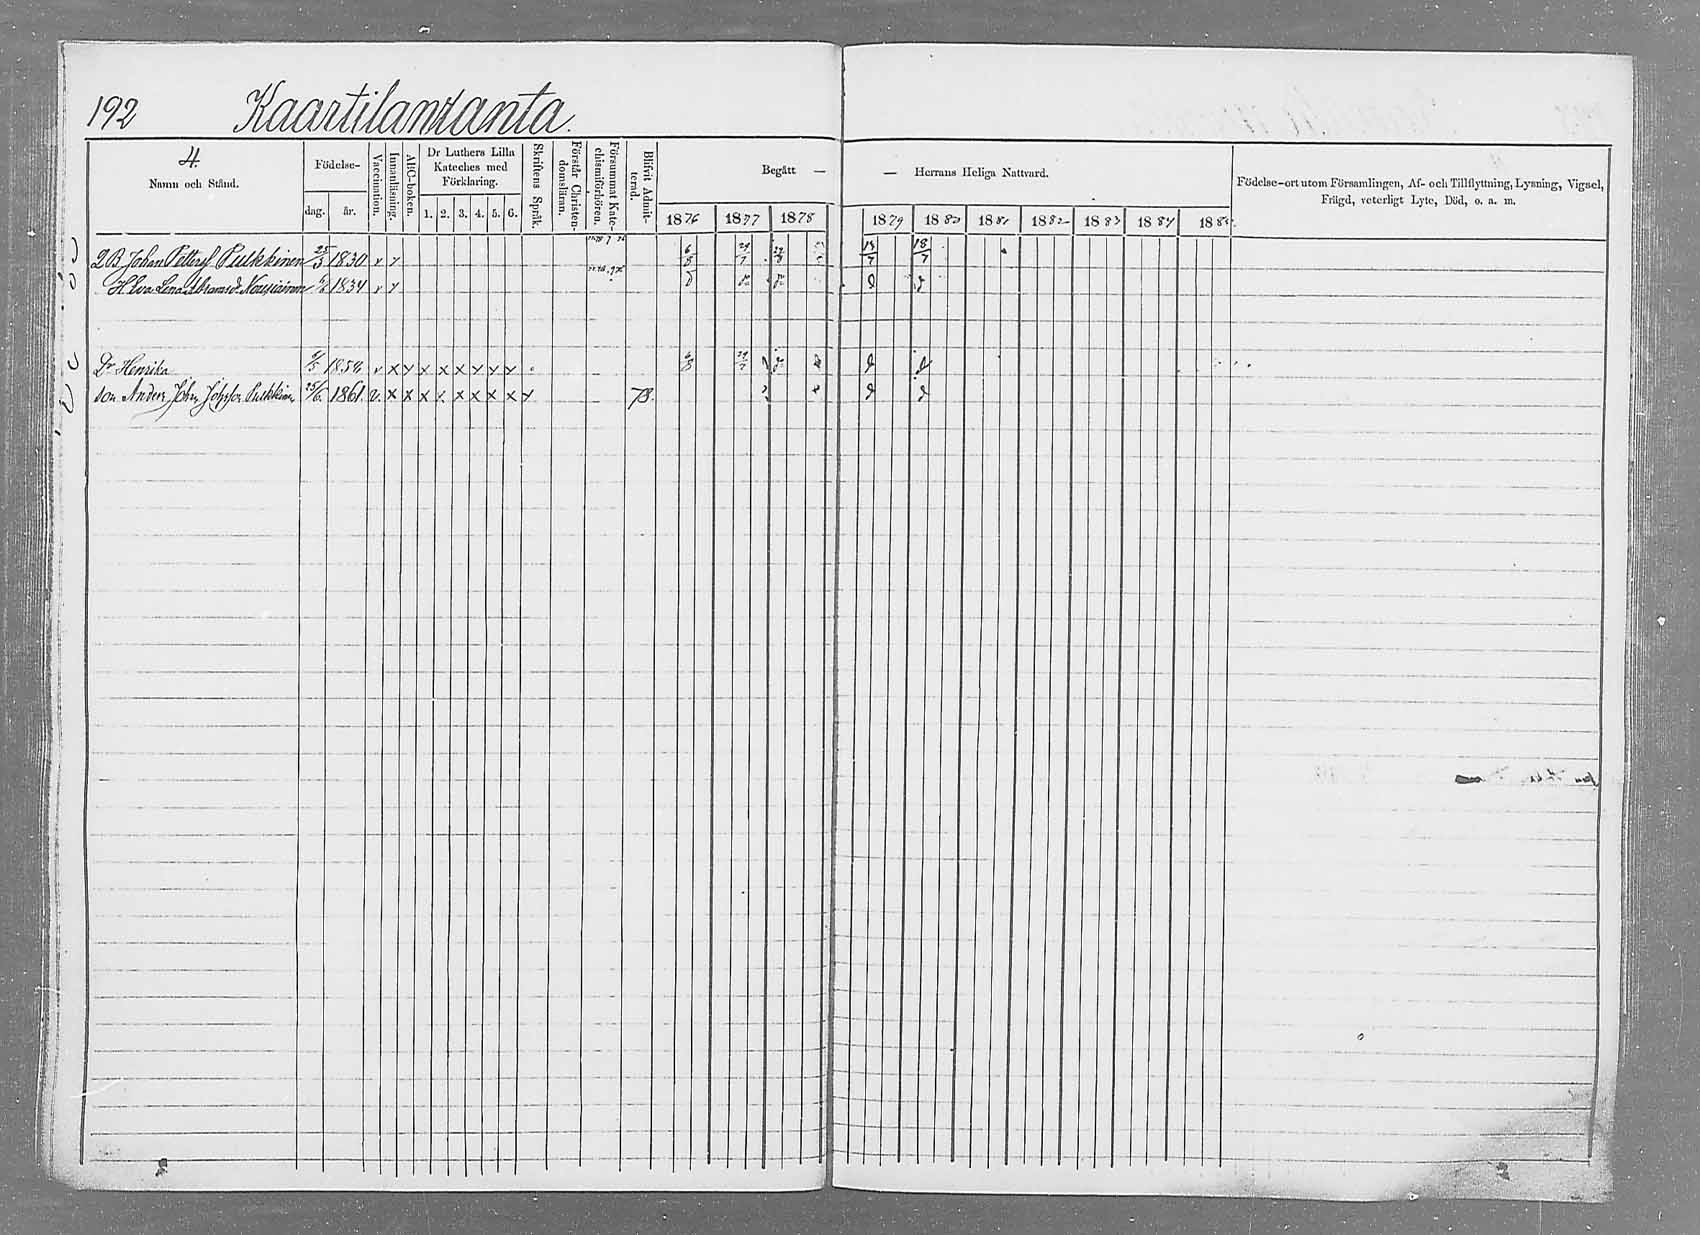 192 Kaartilanranta.
4.
Namn och Stånd.
Födelse-
dag. år.
Vaccination.
Innanläsning.
ABC-boken.
Dr Luthers Lilla
Kateches med
Förklaring.
1. 2. 3. 4. 5. 6.
Skriftens Språk.
Förstår Christen-
domsläran.
Försummat Kate-
chismiförhören.
Blifvit Admit-
terad.
Begått — — Herrans Heliga Nattvard.
1876 1877 1878 1879 1880 1881 1882 1883 1884 1885
Födelse-ort utom Församlingen, Af- och Tillflyttning, Lysning, Vigsel,
Frägd, veterligt Lyte, Död, o. a. m.
Johan Petterss Pulkkinen 25/3 1830 v 6/8 29/7 18/7 18/7
H. Eva Lena Abramsd. 1834 v
Dr Henrika 1854 v x x x x x 6/8 29/7
Son Anders Johan Pulkkinen 25/6 1861 v. x x x x x x x 78.